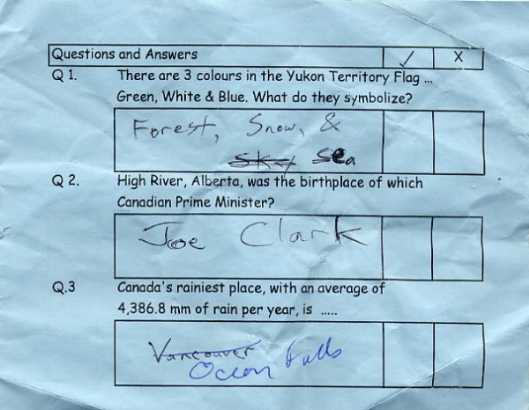 Questions and Answers ✓ X
Q 1. There are 3 colours in the Yukon Territory Flag ...
Green, White & Blue. What do they symbolize?
Forest, Snow, &
Sky Sea
Q 2. High River, Alberta, was the birthplace of which
Canadian Prime Minister?
Joe Clark
Q.3 Canada's rainiest place, with an average of
4,386.8 mm of rain per year, is .....
Vancouver
Ocean Falls